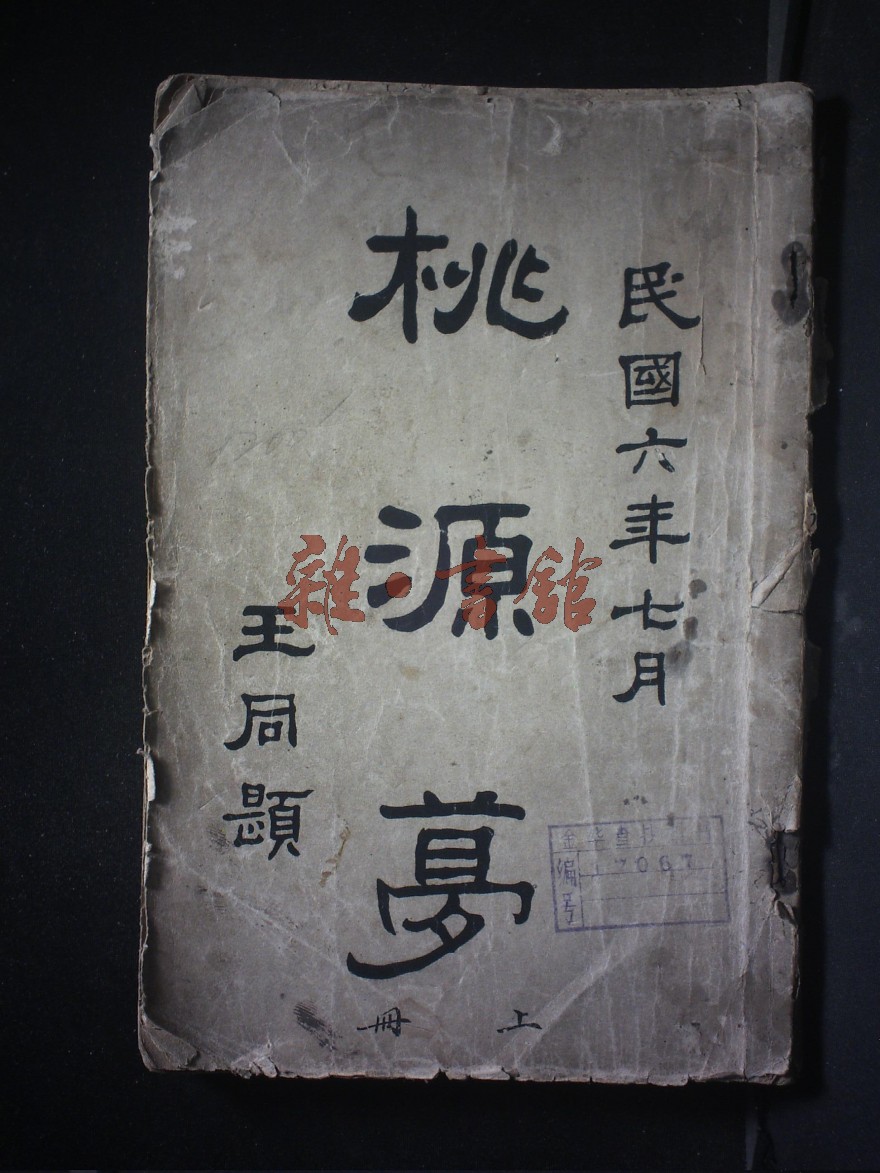 民國六年七月
桃源夢
王同題
上冊
雜·書館
編号
17067